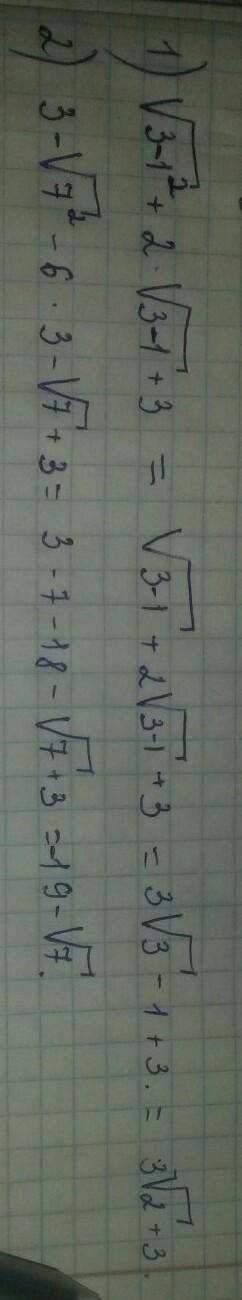 1) √3-1² + 2·√3-1 + 3 = √3-1 + 2√3-1 + 3 = 3√3 - 1 + 3. = 3√2 + 3.
2) 3-√7² - 6·3-√7 + 3 = 3-7-18-√7+3 =-19-√7.